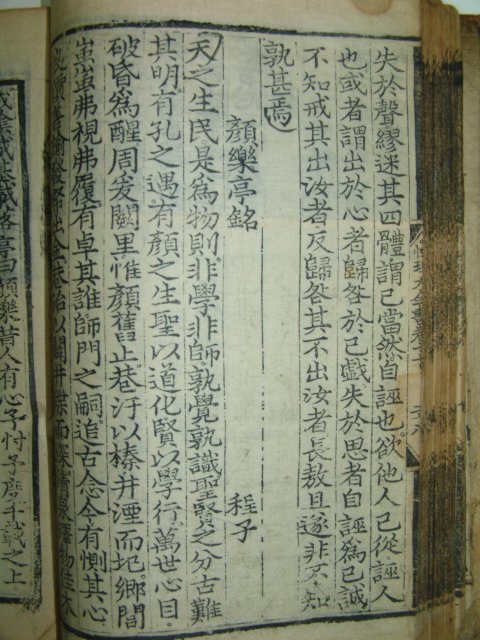 失於聲繆迷其四體謂己當然自誣也欲他人己從誣人
也或者謂出於心者歸咎於己戲失於思者自誣爲己誠
不知戒其出汝者反歸咎其不出汝者長敖且遂非不知
孰甚焉
顔樂亭銘 程子
天之生民是爲物則非學非師孰覺孰識聖賢之分古難
其明有孔之遇有顔之生聖以道化賢以學行萬世心目
破昏爲醒周爰闕里惟顔舊止巷汙以榛井湮而圮鄉閭
蚩蚩弗視弗履有卓其誰師門之嗣追古念今有惻其心
良價善諭發帑出金巷治以闢井渫而深清泉澤物佳木
成陰載基載落亭曰顔樂昔人有心予忖予度千載之上